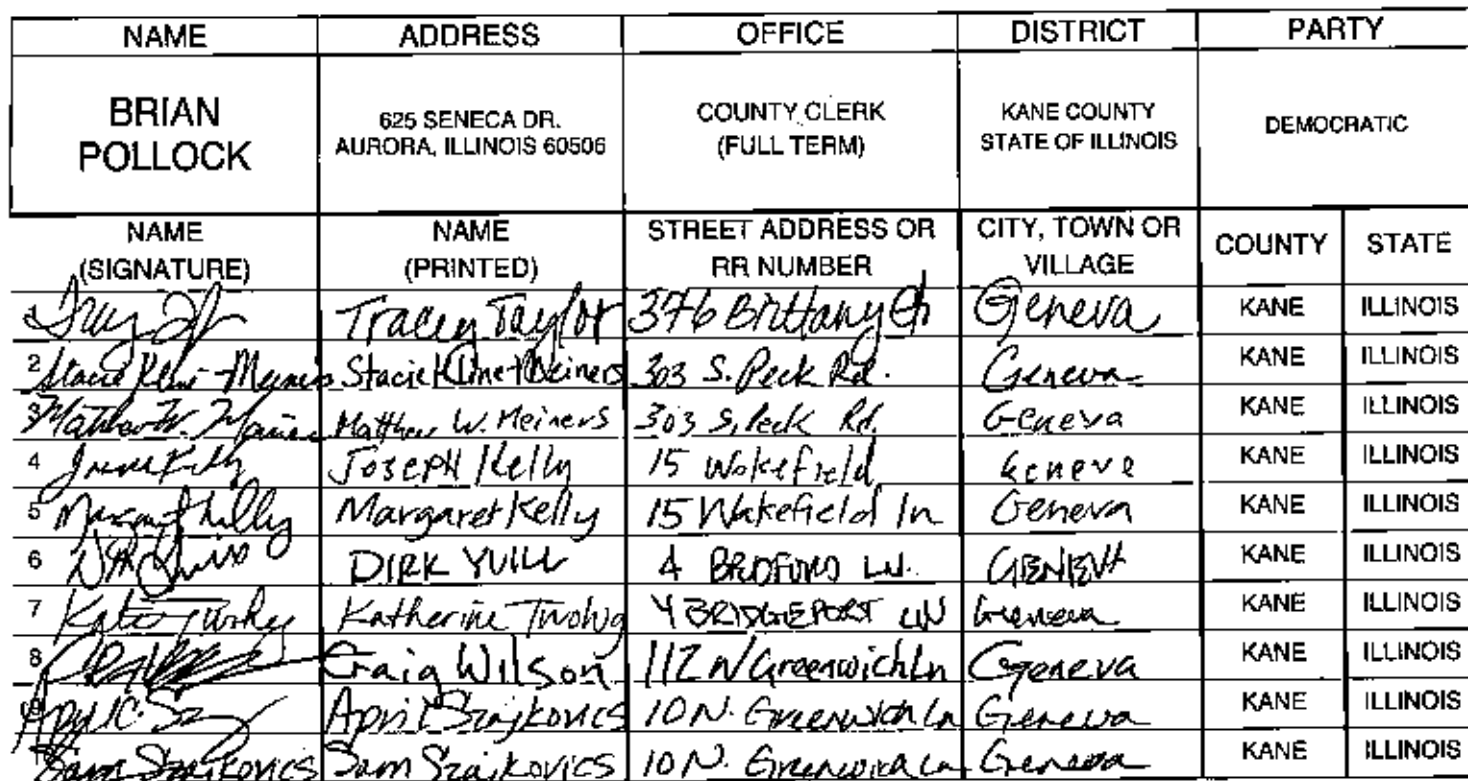 NAME ADDRESS OFFICE DISTRICT PARTY
BRIAN POLLOCK 625 SENECA DR. AURORA, ILLINOIS 60506 COUNTY CLERK (FULL TERM) KANE COUNTY STATE OF ILLINOIS DEMOCRATIC
NAME (SIGNATURE) NAME (PRINTED) STREET ADDRESS OR RR NUMBER CITY, TOWN OR VILLAGE COUNTY STATE
Tracey Taylor 376 Brittany Geneva KANE ILLINOIS
2 Stacie 303 S. Peck Rd. Geneva KANE ILLINOIS
3 Matthew W. Meiners 303 S. Peck Rd. Geneva KANE ILLINOIS
4 Joseph Kelly 15 Wakefield Geneva KANE ILLINOIS
5 Margaret Kelly Margaret Kelly 15 Wakefield ln Geneva KANE ILLINOIS
6 DIRK YUILL 4 LN. GENEVA KANE ILLINOIS
7 Katherine 4 BRIDGEPORT LN Geneva KANE ILLINOIS
8 Craig Wilson 112 N Greenwich Ln Geneva KANE ILLINOIS
April Szajkovics 10 N. Greenwich Ln Geneva KANE ILLINOIS
Sam Szajkovics Sam Szajkovics 10 N. Greenwich Ln Geneva KANE ILLINOIS